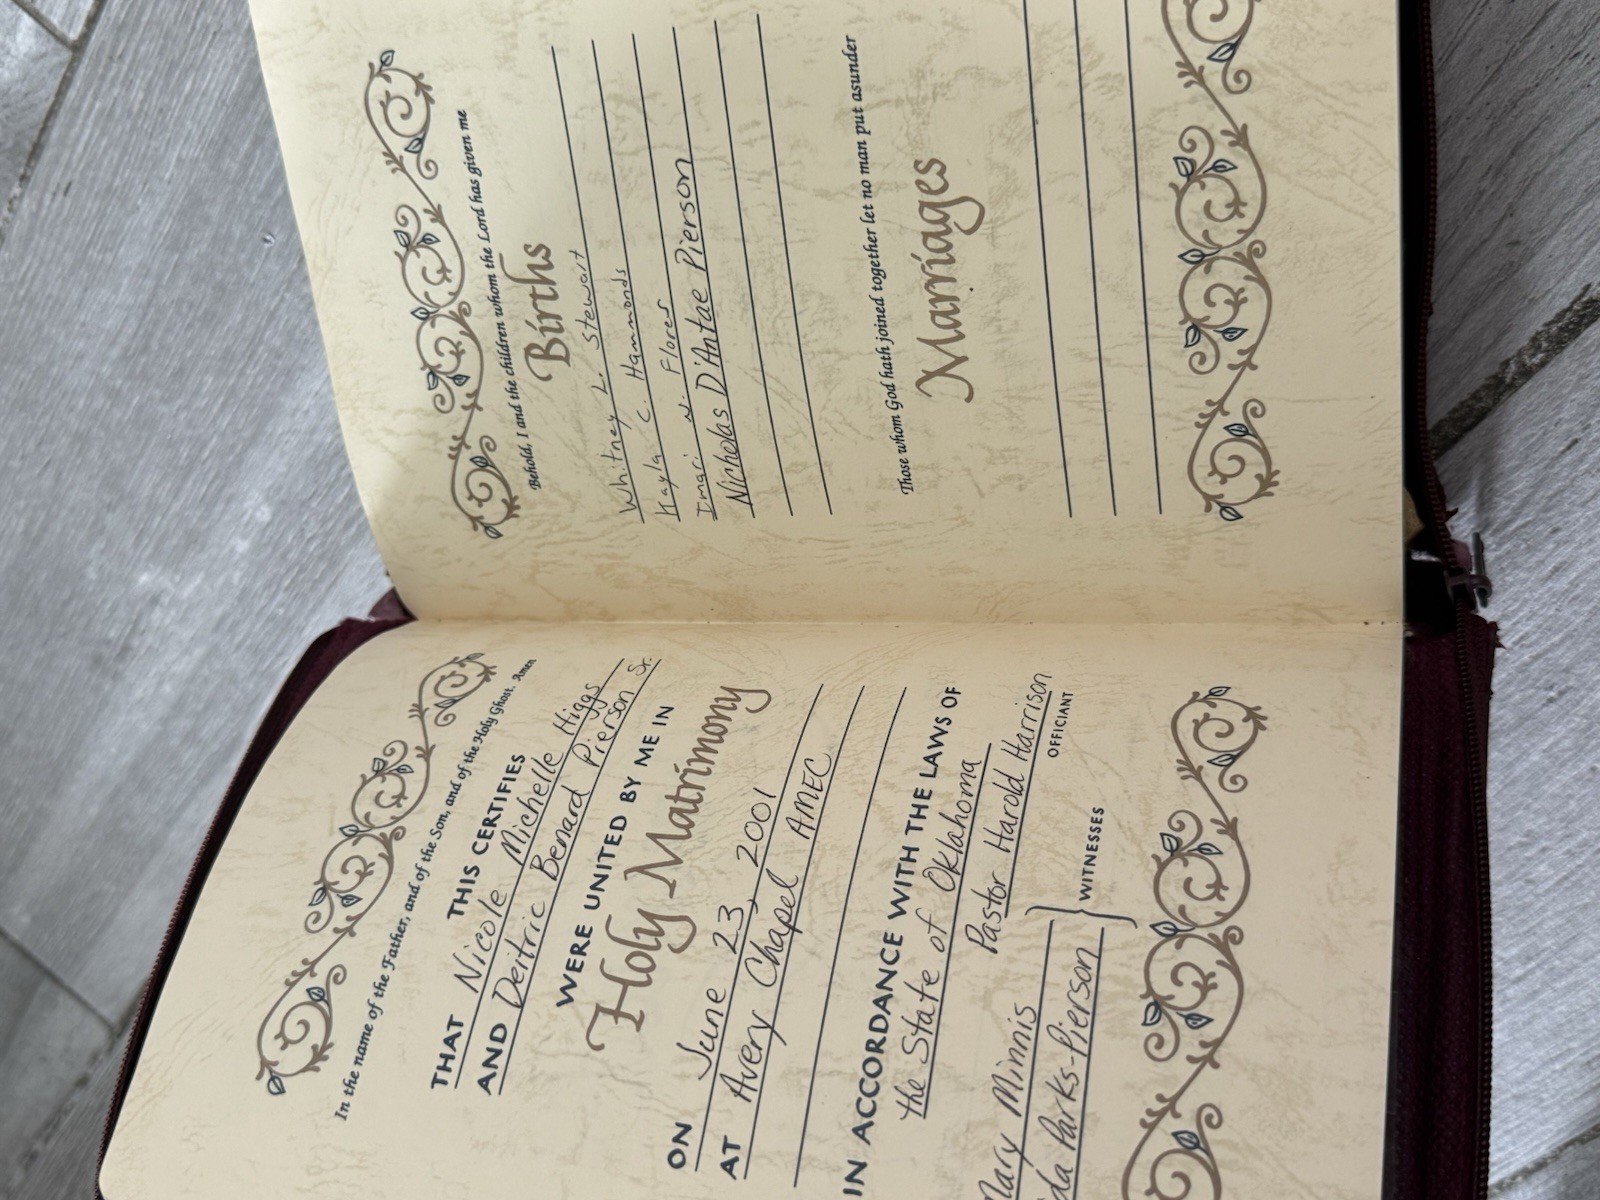 In the name of the Father, and of the Son, and of the Holy Ghost. Amen
THIS CERTIFIES
THAT Nicole Michelle Higgs
AND Deitric Benard Pierson Sr.
WERE UNITED BY ME IN
Holy Matrimony
ON June 23, 2001
AT Avery Chapel AMEC
IN ACCORDANCE WITH THE LAWS OF
the State of Oklahoma
Pastor Harold Harrison
OFFICIANT
Mary Minnis
Parks-Pierson
WITNESSES
Behold, I and the children whom the Lord has given me
Births
Whitney L. Stewart
Kayla C. Hammonds
Imari N. Flores
Nicholas D'Antae Pierson
Those whom God hath joined together let no man put asunder
Marriages